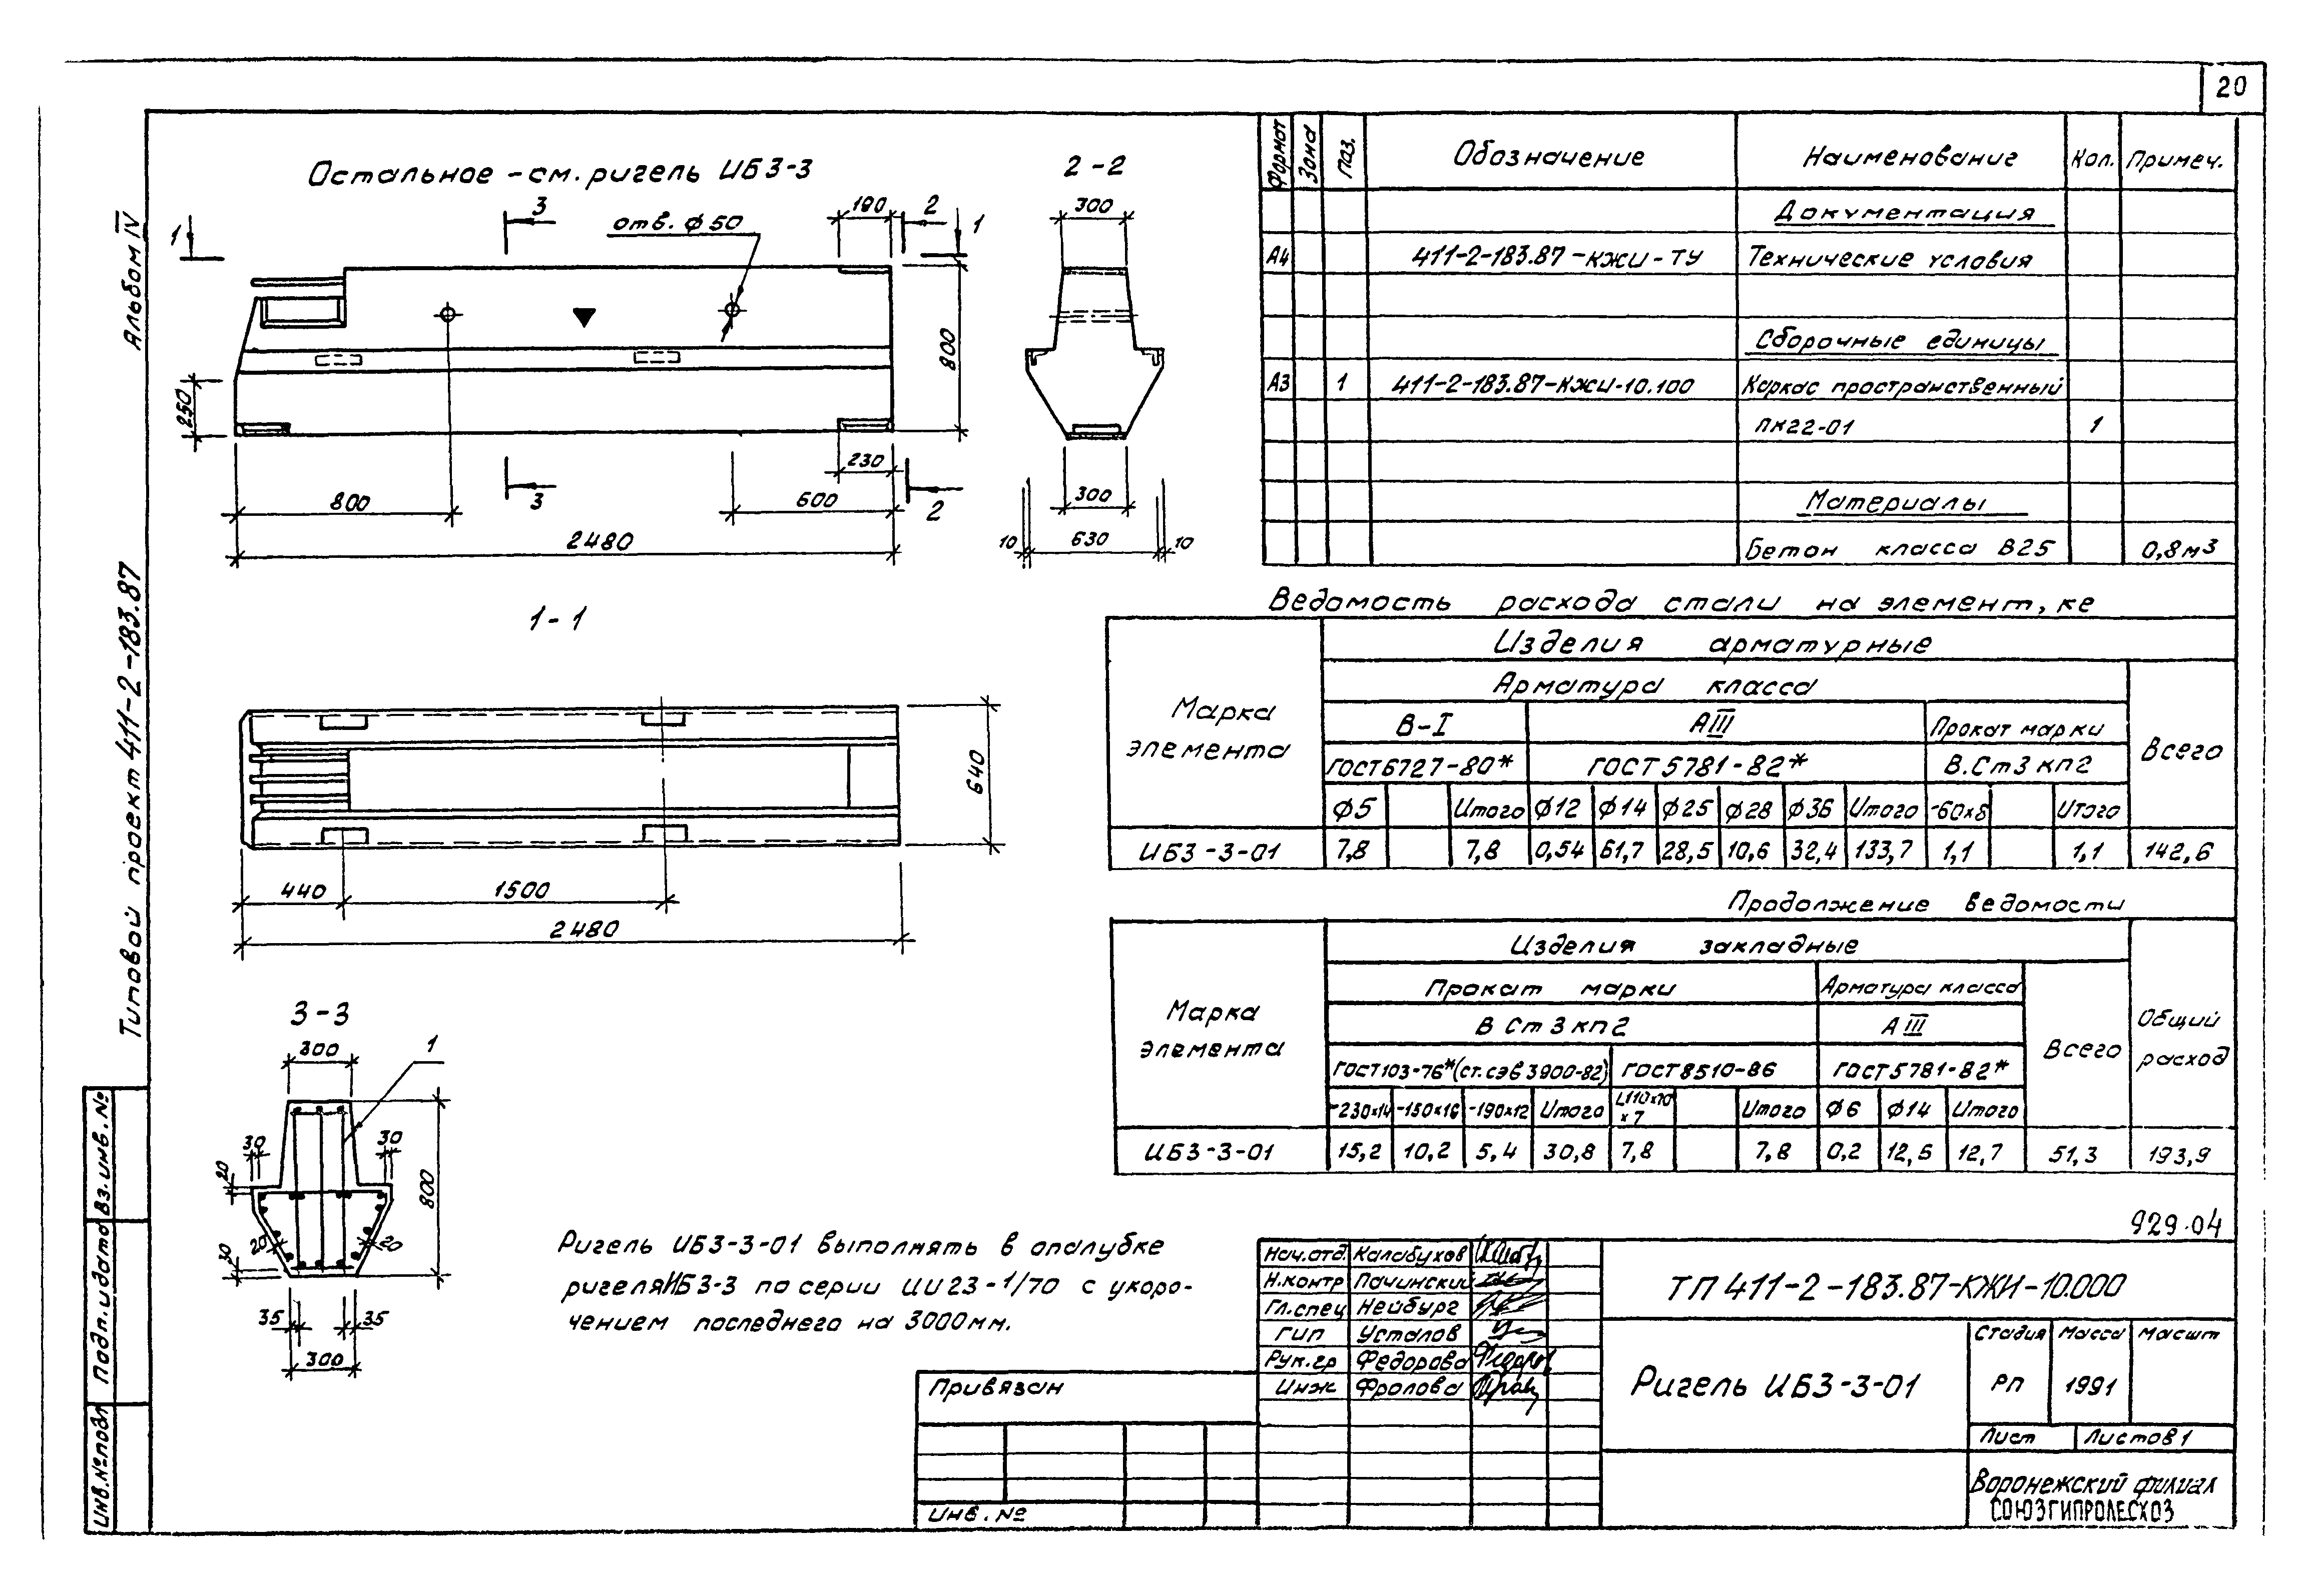 20
Альбом IV
Типовой проект 411-2-183.87
Инв.№подл
Подп.и дата
Вз.инв.№
Остальное - см. ригель ИБ3-3
1
3
отв. ф50
190
2
1
250
800
230
3
2
800
600
2480
2-2
300
300
10
630
10
1-1
640
440
1500
2480
3-3
300
1
30
30
20
800
20
20
30
35
35
300
Формат
Зона
Поз.
Обозначение
Наименование
Кол.
Примеч.
Документация
А4
411-2-183.87-КЖИ-ТУ
Технические условия
Сборочные единицы
А3
1
411-2-183.87-КЖИ-10.100
Каркас пространственный
ПК22-01
1
Материалы
Бетон класса В25
0,8м3
Ведомость расхода стали на элемент, кг
Марка элемента
Изделия арматурные
Арматура класса
Всего
В-I
АIII
Прокат марки
ГОСТ6727-80*
ГОСТ5781-82*
В.Ст3кп2
ф5
Итого
ф12
ф14
ф25
ф28
ф36
Итого
-60х8
Итого
ИБ3-3-01
7,8
7,8
0,54
61,7
28,5
10,6
32,4
133,7
1,1
1,1
142,6
Продолжение ведомости
Марка элемента
Изделия закладные
Общий расход
Прокат марки
Арматура класса
Всего
В Ст3кп2
АIII
ГОСТ103-76*(ст.сэв 3900-82)
ГОСТ8510-86
ГОСТ5781-82*
-230х14
-150х16
-190х12
Итого
L110х70
х7
Итого
ф6
ф14
Итого
ИБ3-3-01
15,2
10,2
5,4
30,8
7,8
7,8
0,2
12,5
12,7
51,3
193,9
Ригель ИБ3-3-01 выполнять в опалубке
ригеляИБ3-3 по серии ИИ23-1/70 с укоро-
чением последнего на 3000мм.
929.04
Нач.отд.
Калабухов
Н.контр
Пачинский
Гл.спец
Нейбург
ГИП
Усталов
Рук.гр
Федорова
Инж
Фролова
ТП 411-2-183.87-КЖИ-10.000
Ригель ИБ3-3-01
Стадия
Масса
Масшт
РП
1991
Лист
Листов 1
Воронежский филиал
СОЮЗГИПРОЛЕСХОЗ
Привязан
Инв.№